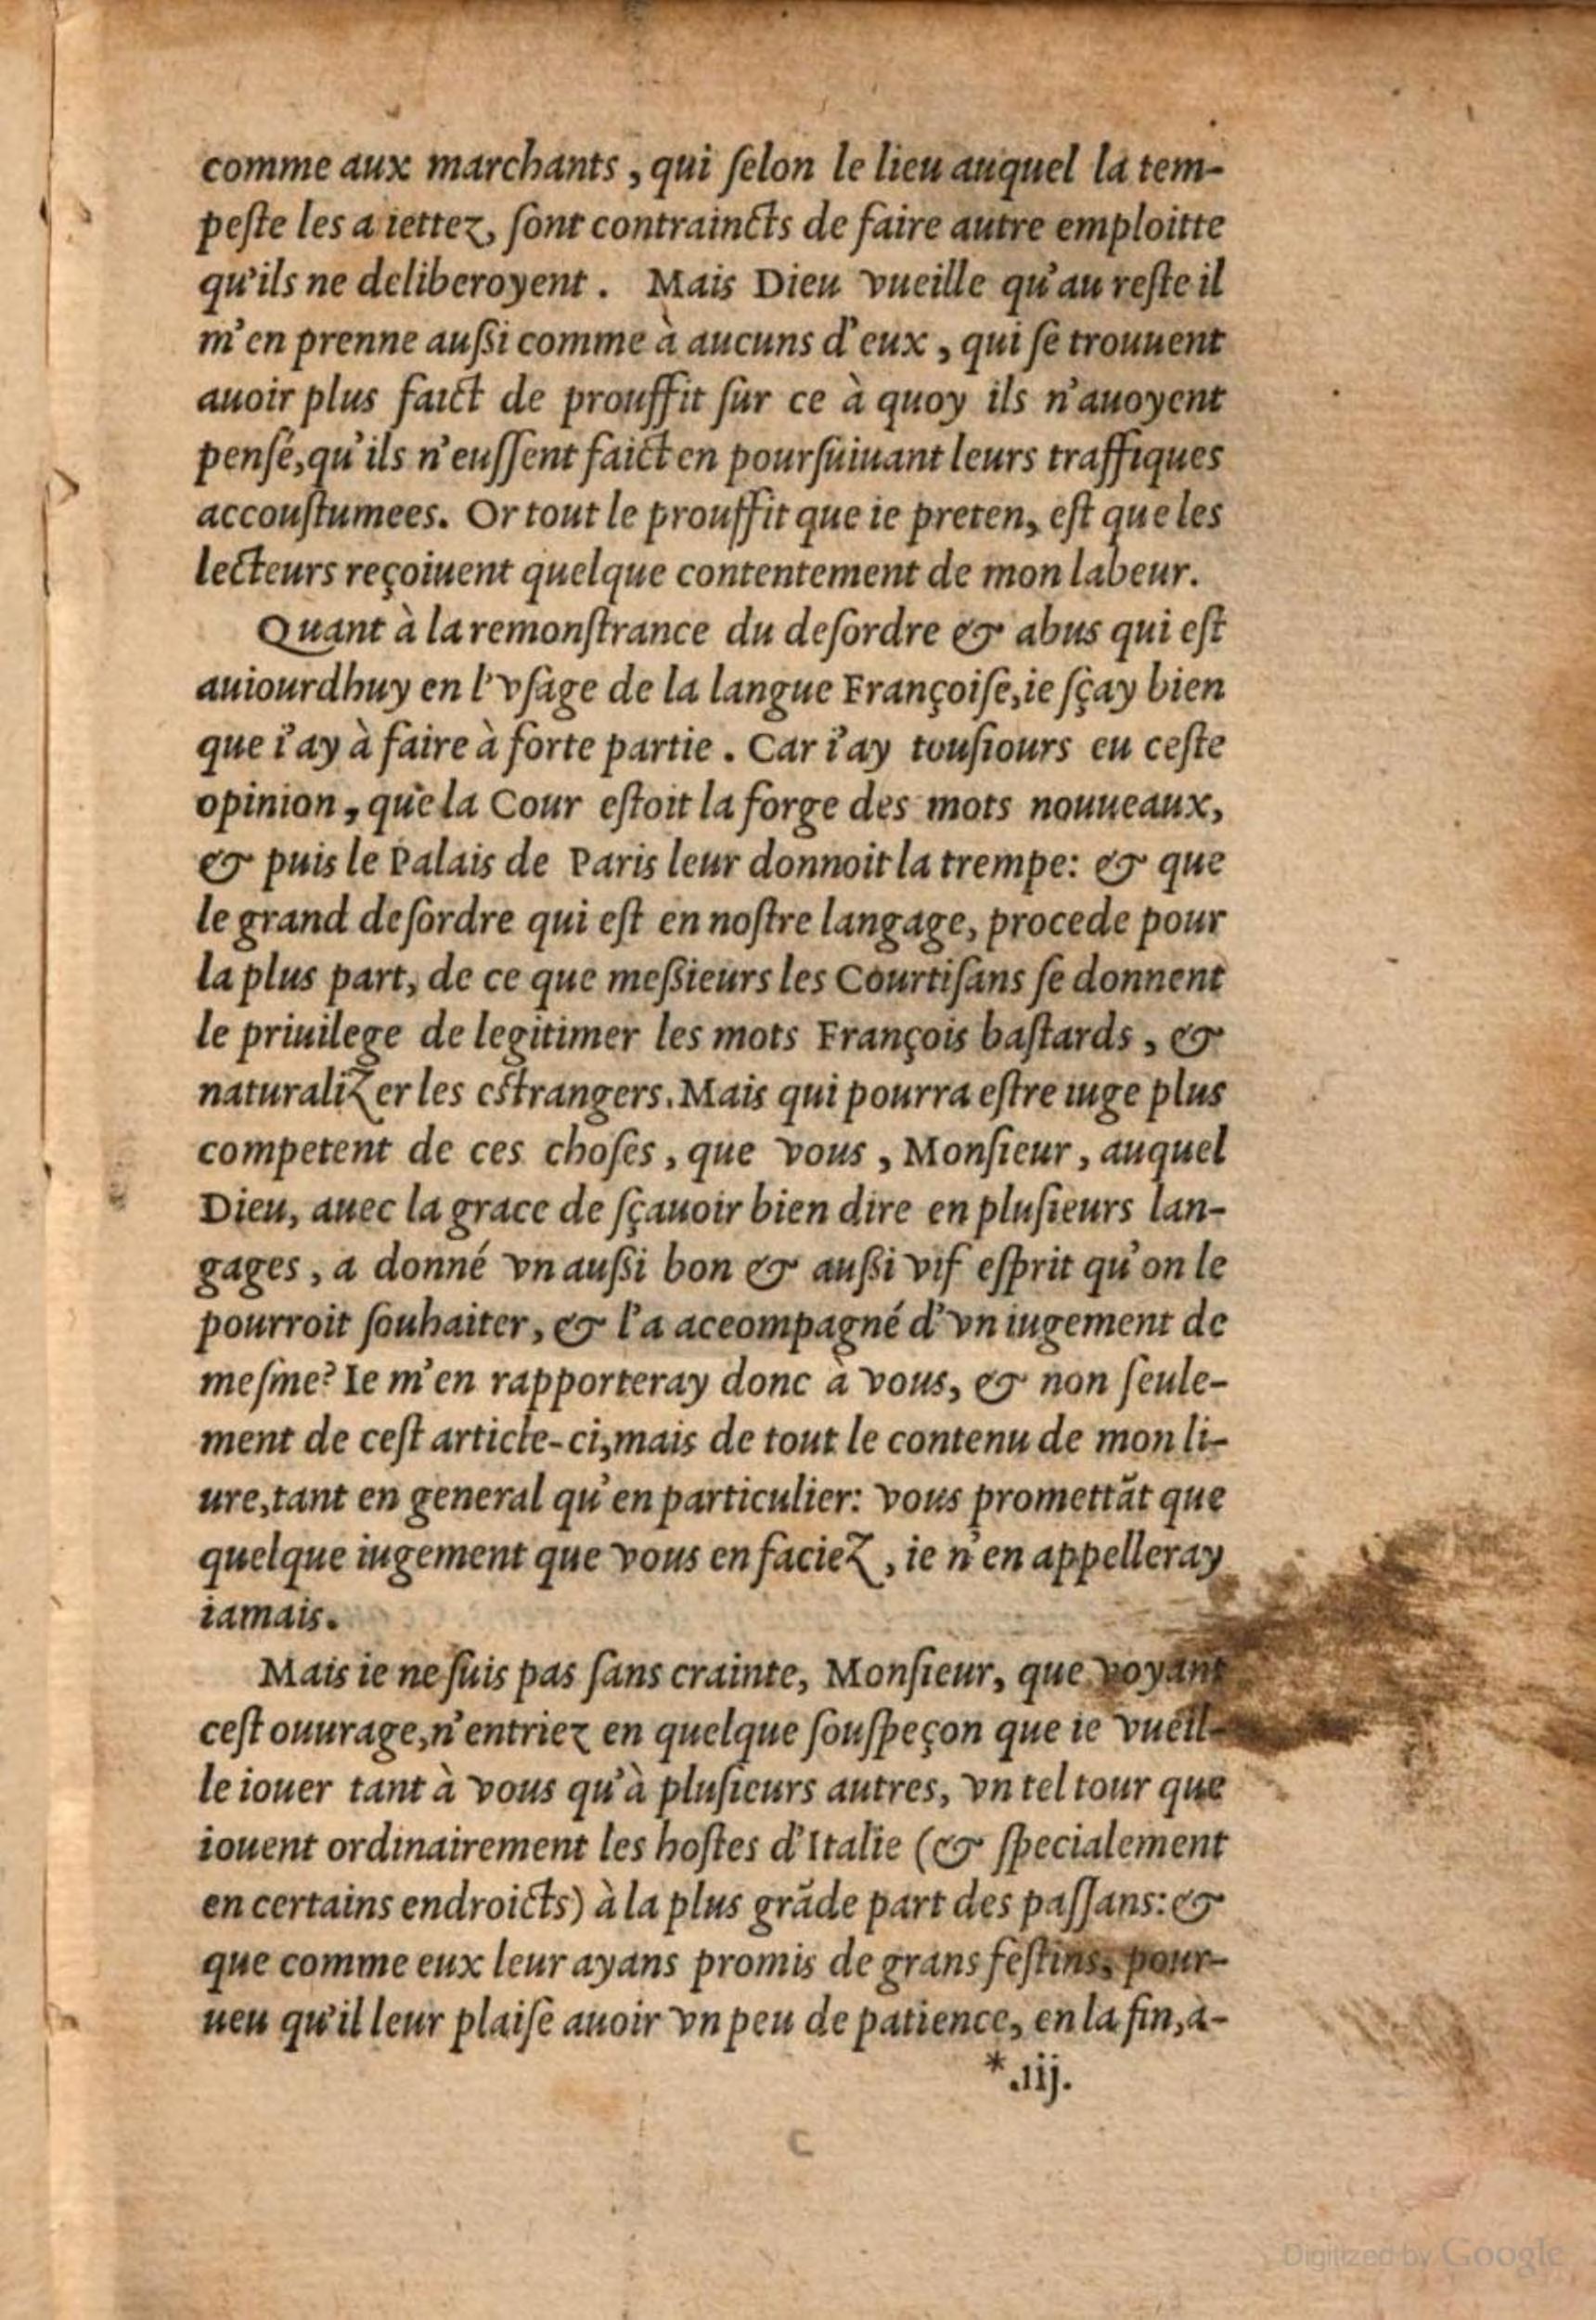 comme aux marchants , qui ſelon le lieu auquel la tem-
peſte les a iettez, ſont contraincts de faire autre emploitte
qu'ils ne deliberoyent . Mais Dieu vueille qu'au reſte il
m'en prenne auſſi comme à aucuns d'eux , qui ſe trouuent
auoir plus faict de prouffit ſur ce à quoy ils n'auoyent
penſé,qu'ils n'euſſent faict en pourſuiuant leurs traffiques
accouſtumees. Or tout le prouffit que ie preten, eſt que les
lecteurs reçoiuent quelque contentement de mon labeur.
Quant à la remonſtrance du deſordre & abus qui eſt
auiourdhuy en l'vſage de la langue Françoiſe,ie ſçay bien
que i'ay à faire à forte partie . Car i'ay touſiours eu ceſte
opinion , que la Cour eſtoit la forge des mots nouueaux,
& puis le Palais de Paris leur donnoit la trempe: & que
le grand deſordre qui eſt en noſtre langage, procede pour
la plus part, de ce que meſſieurs les Courtiſans ſe donnent
le priuilege de legitimer les mots François baſtards , &
naturalizer les eſtrangers. Mais qui pourra eſtre iuge plus
competent de ces choſes , que vous , Monſieur , auquel
Dieu, auec la grace de ſçauoir bien dire en pluſieurs lan-
gages , a donné vn auſſi bon & auſſi vif eſprit qu'on le
pourroit ſouhaiter, & l'a aceompagné d'vn iugement de
meſme? Ie m'en rapporteray donc à vous, & non ſeule-
ment de ceſt article-ci,mais de tout le contenu de mon li-
ure,tant en general qu'en particulier: vous promettāt que
quelque iugement que vous en faciez , ie n'en appelleray
iamais.
Mais ie ne ſuis pas ſans crainte, Monſieur, que voyant
ceſt ouurage,n'entriez en quelque ſouſpeçon que ie vueil-
le iouer tant à vous qu'à pluſieurs autres, vn tel tour que
iouent ordinairement les hoſtes d'Italie (& ſpecialement
en certains endroicts) à la plus grāde part des paſſans: &
que comme eux leur ayans promis de grans feſtins, pour-
ueu qu'il leur plaiſe auoir vn peu de patience, en la fin,a-
*.iij.
C
Digitized by Google